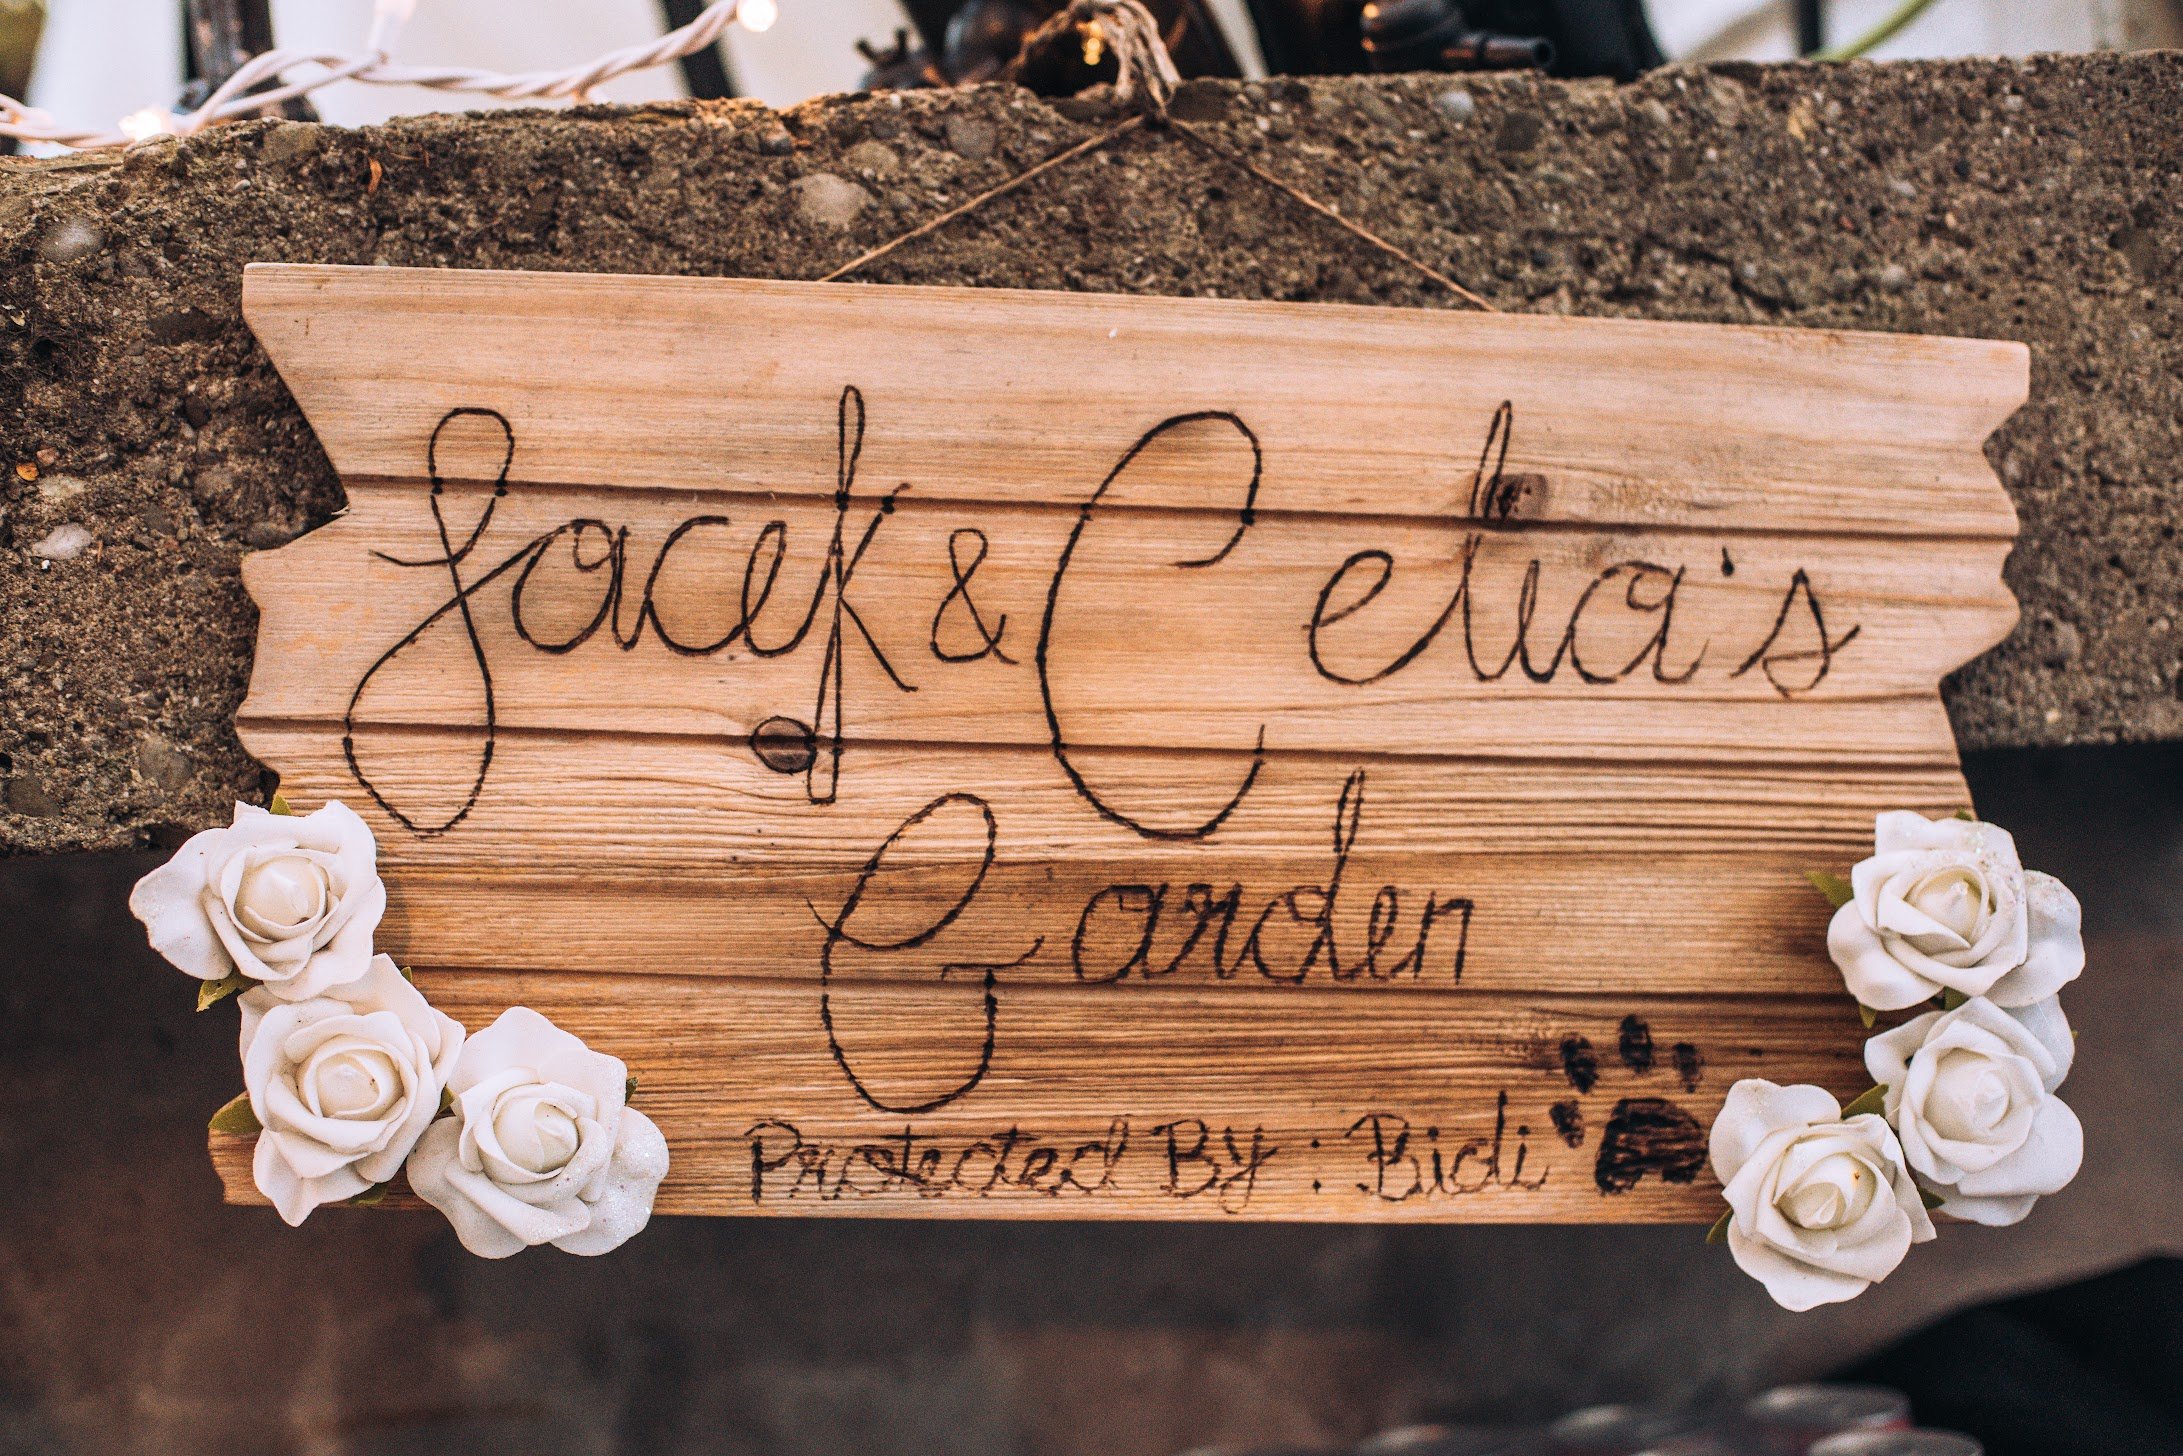 Jacek & Celia's
Garden
Protected By: Bidi